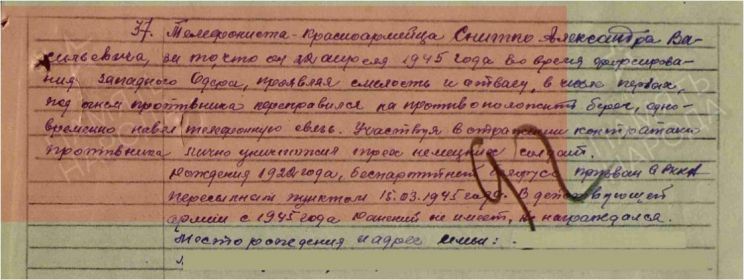 37. Телефониста-Красноармейца Снитко Александра Ва-
сильевича, за то что он 22 апреля 1945 года во время форсирова-
ния Западного Одера, проявляя смелость и отвагу, в числе первых,
под огнем противника переправился на противоположный берег, одно-
временно навел телефонную связь. Участвуя в отражении контратаки
противника лично уничтожил трех немецких солдат.
Рождения 1922 года, беспартийный, призван в РККА
Пересыльным пунктом 15.03.1945 года. В действующей
армии с 1945 года Ранений не имеет, не награждался.
Место рождения и адрес семьи: